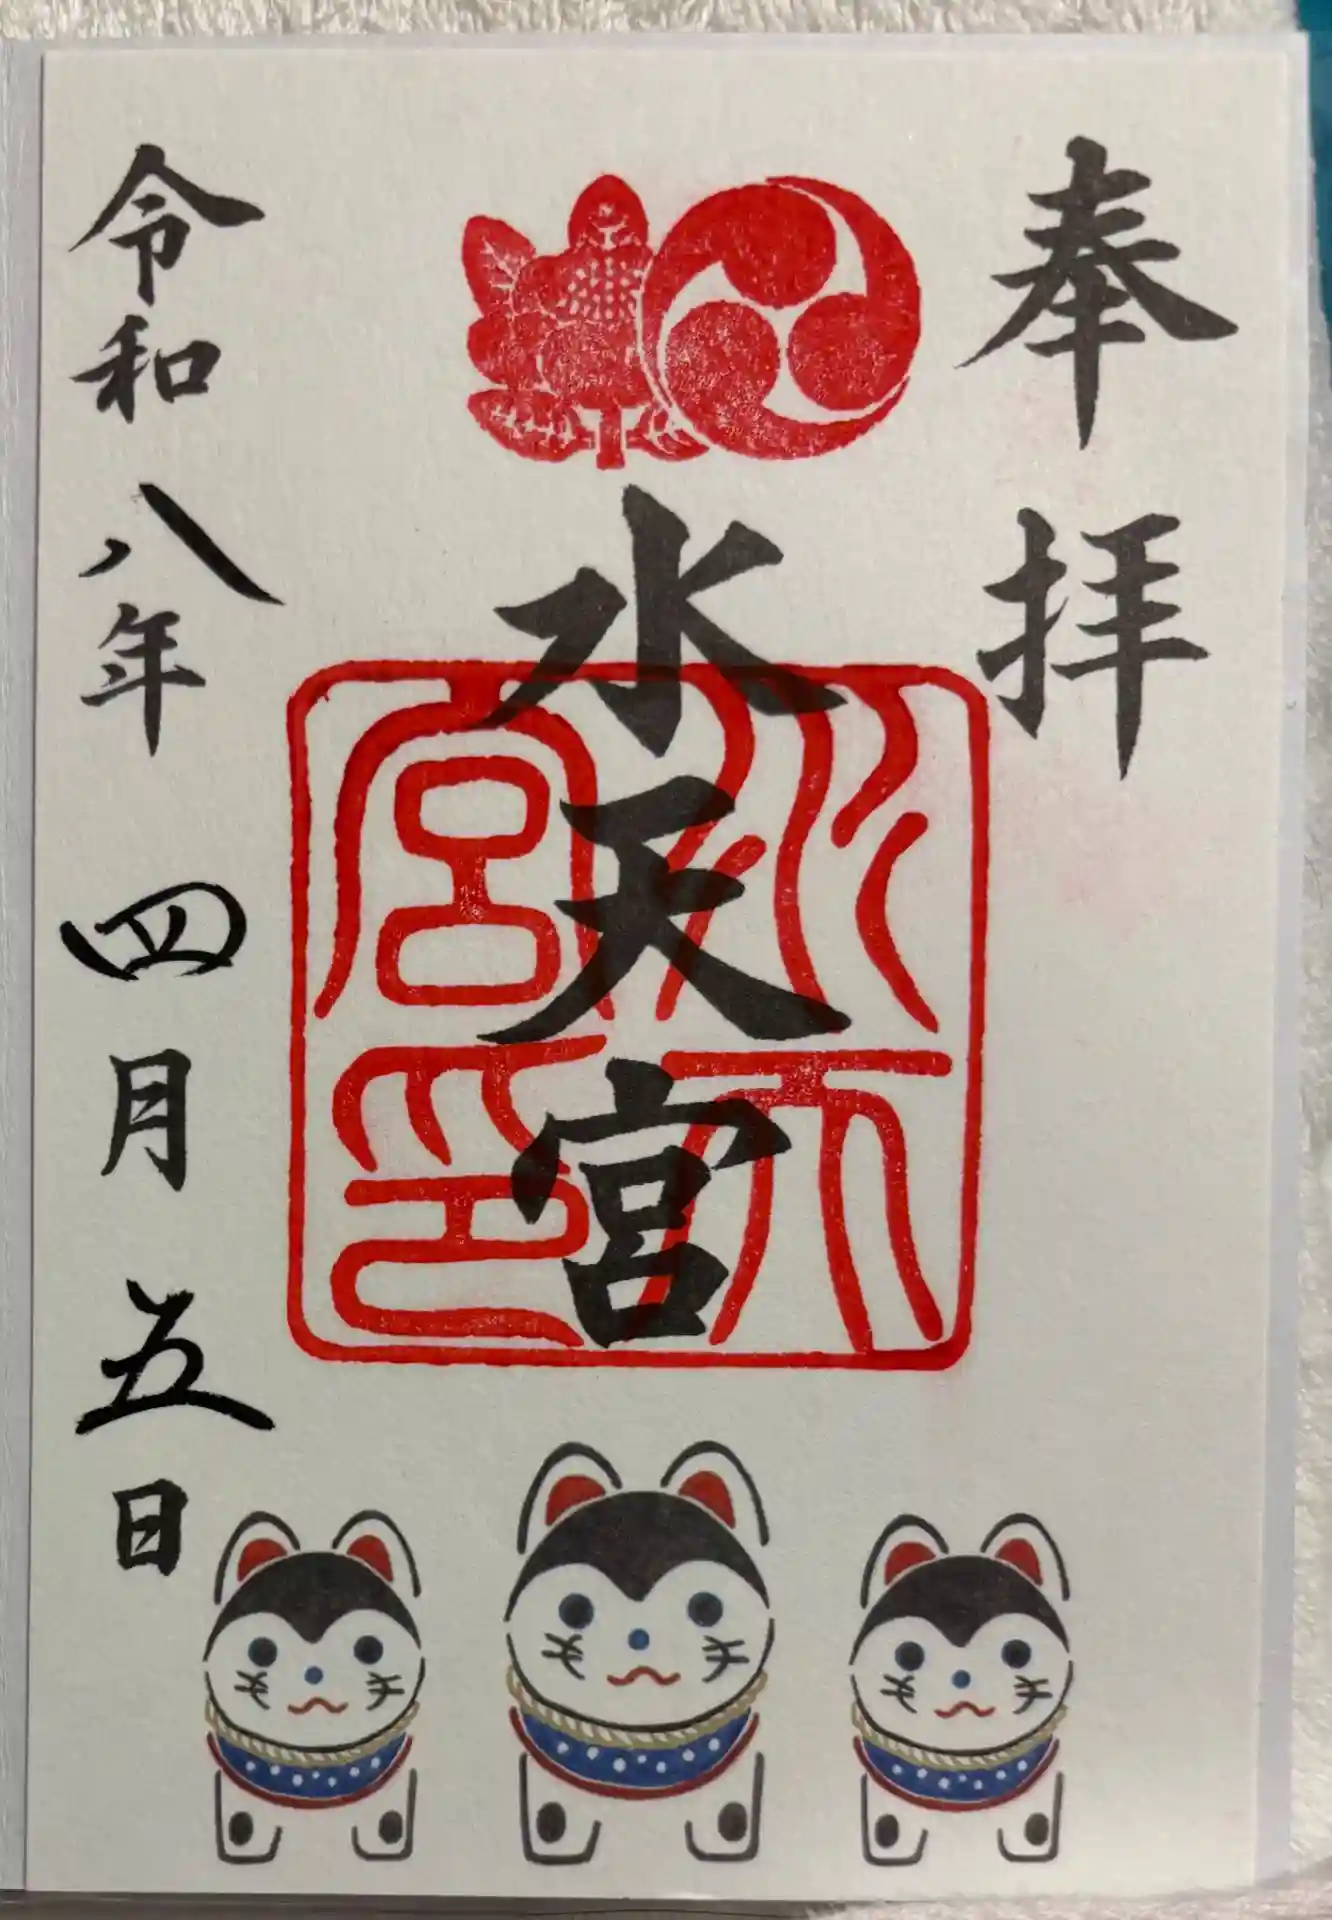 奉拝
水天宮
水天宮印
令和八年四月五日